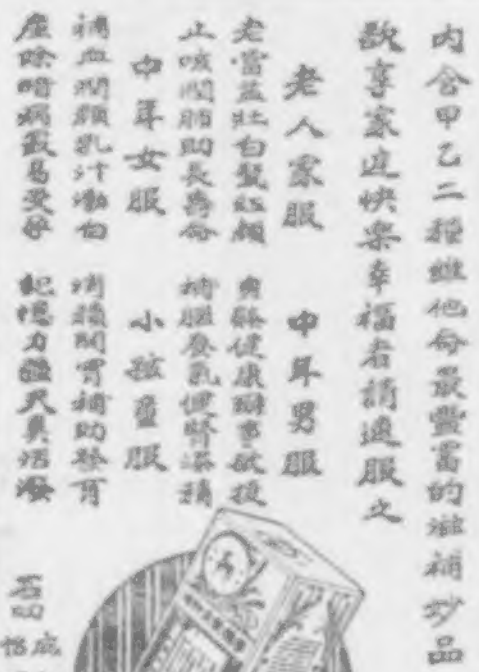 內含甲乙二種維他命最豐富的滋補妙品
欲享家庭快樂幸福者請速服之
老人家服
老當益壯白髮紅顏
止咳潤肺助長壽命
中年男服
身軀健康辦事敏捷
補腦養氣健腎添精
中年女服
補血潤顏乳汁濃白
產除暗病最易受孕
小孩童服
消積開胃補助發育
記憶力強天真活潑